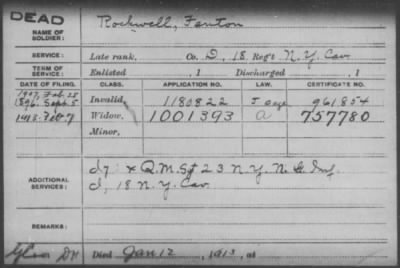 DEAD
NAME OF SOLDIER: Rockwell, Fenton
SERVICE: Late rank, Co. D, 18 Reg't N.Y. Cav.
TERM OF SERVICE: Enlisted , 1 Discharged , 1
DATE OF FILING. CLASS. APPLICATION NO. LAW. CERTIFICATE NO.
1907, Feb. 28
1896, Sept. 5 Invalid, 1180822 961854
1913 Feb 7 Widow, 1001393 a 757780
Minor,
ADDITIONAL SERVICES: Q.M. Sgt 23 N.Y. N.G. Inf.
d, 18 N.Y. Cav.
REMARKS:
Died Jan 12, 1913, at